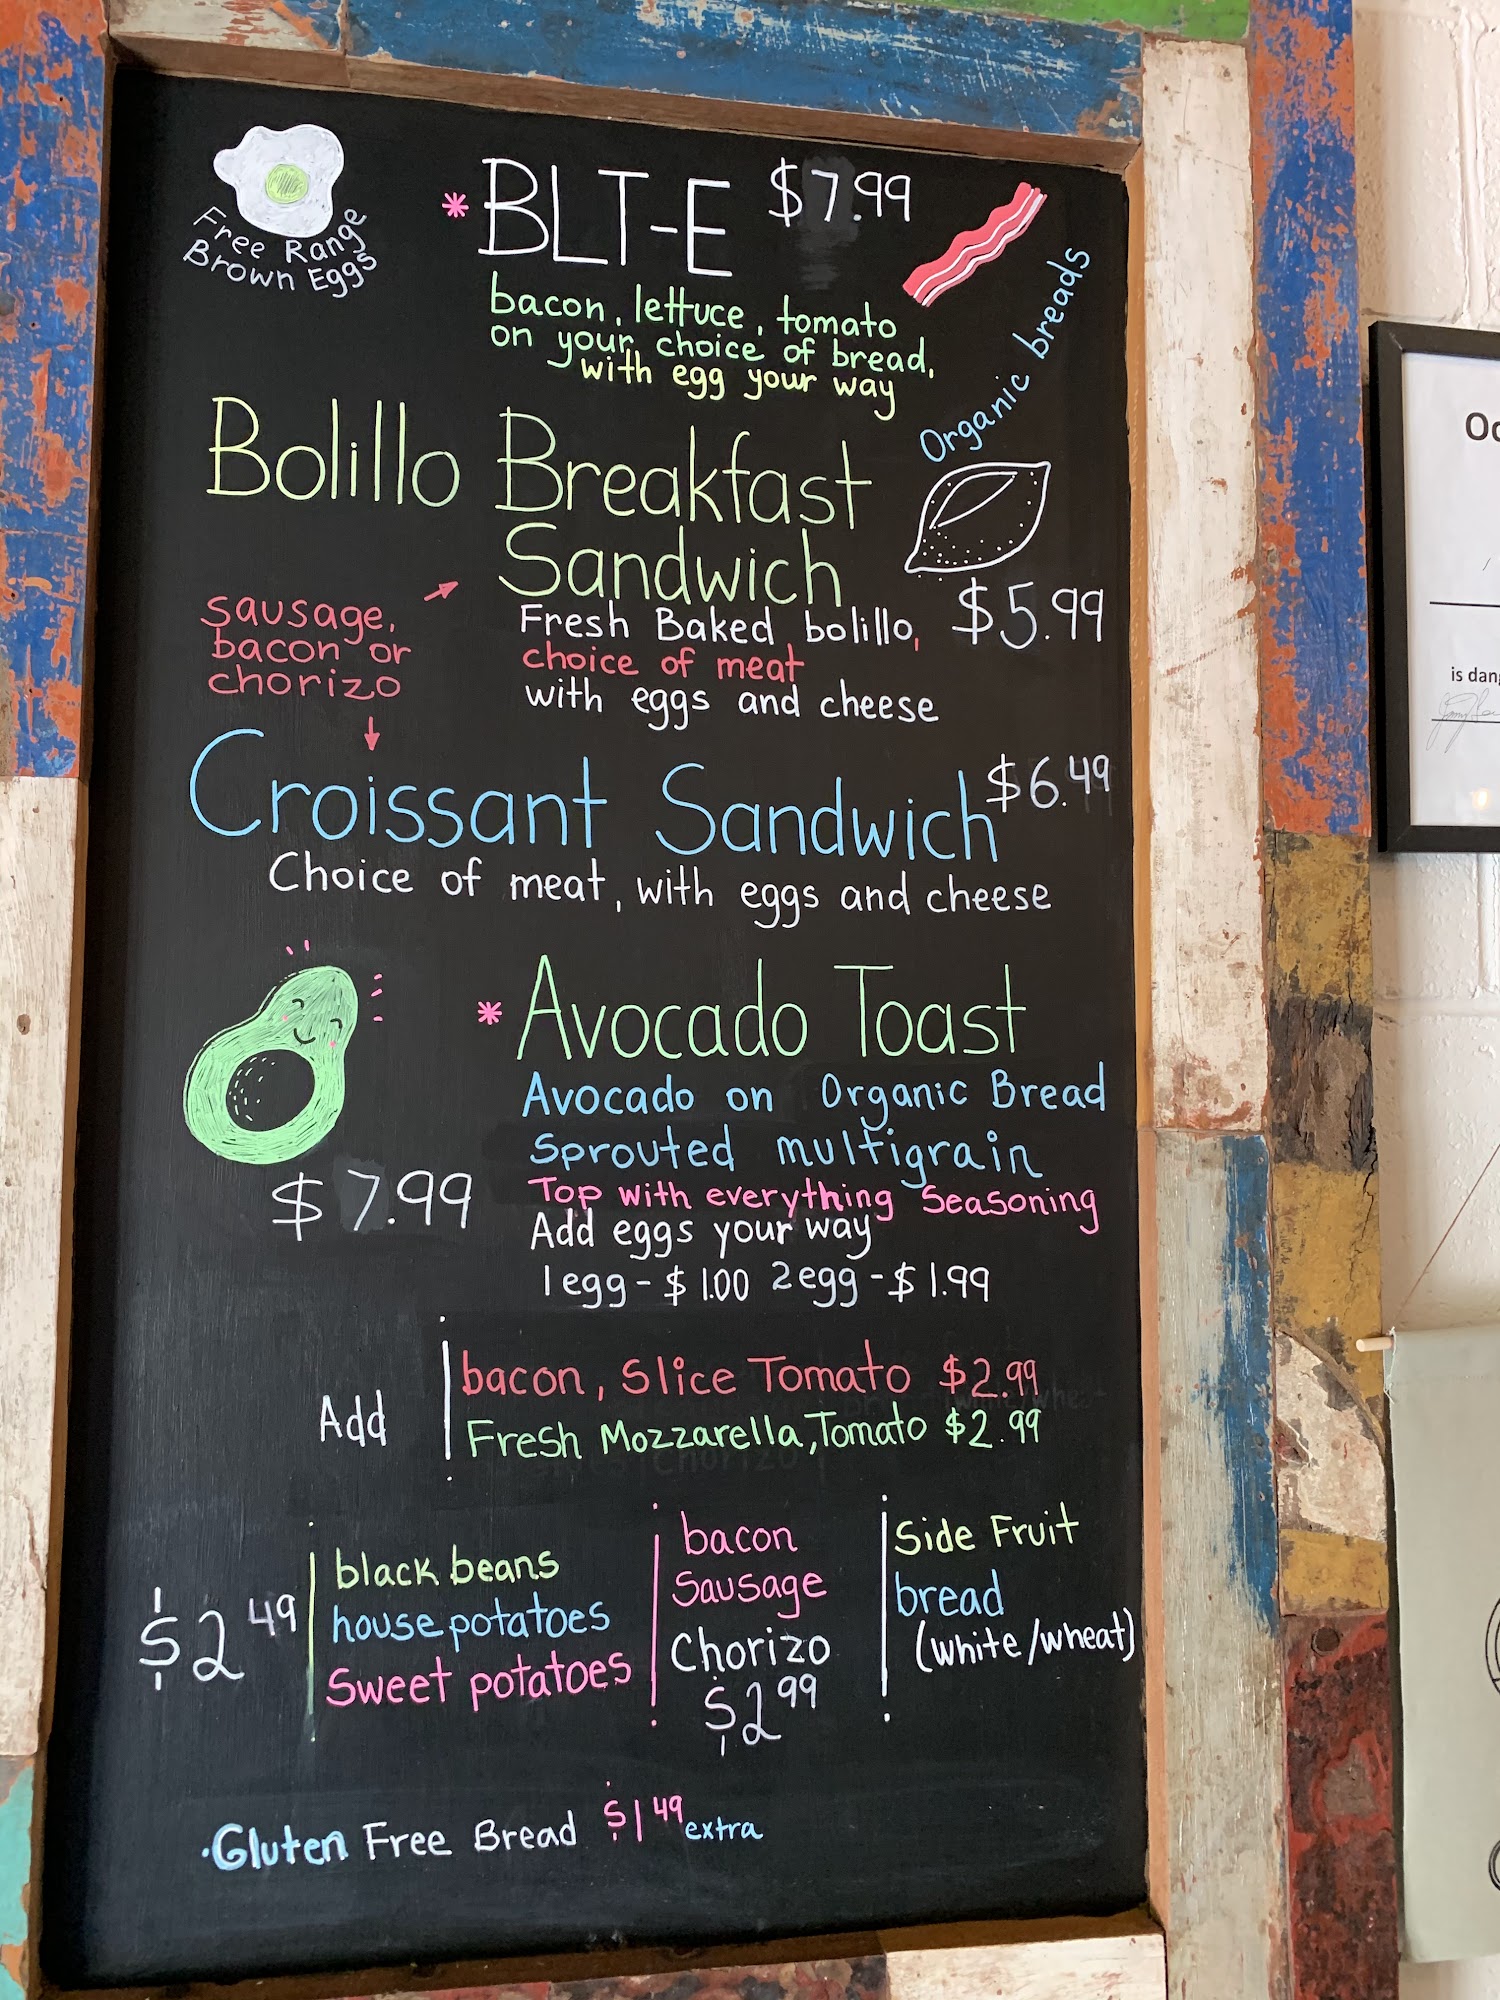 Free Range
Brown Eggs
* BLT-E $7.99
bacon, lettuce, tomato
on your choice of bread,
with egg your way
Organic breads
Bolillo Breakfast
Sandwich
$5.99
sausage,
bacon or
chorizo
Fresh Baked bolillo,
choice of meat
with eggs and cheese
Croissant Sandwich $6.49
Choice of meat, with eggs and cheese
* Avocado Toast
Avocado on Organic Bread
Sprouted multigrain
$7.99
Top with everything Seasoning
Add eggs your way
1 egg - $1.00 2 egg - $1.99
Add
bacon, Slice Tomato $2.99
Fresh Mozzarella, Tomato $2.99
$2.49
black beans
house potatoes
Sweet potatoes
bacon
Sausage
Chorizo
$2.99
Side Fruit
bread
(white/wheat)
·Gluten Free Bread $1.49 extra
is dan